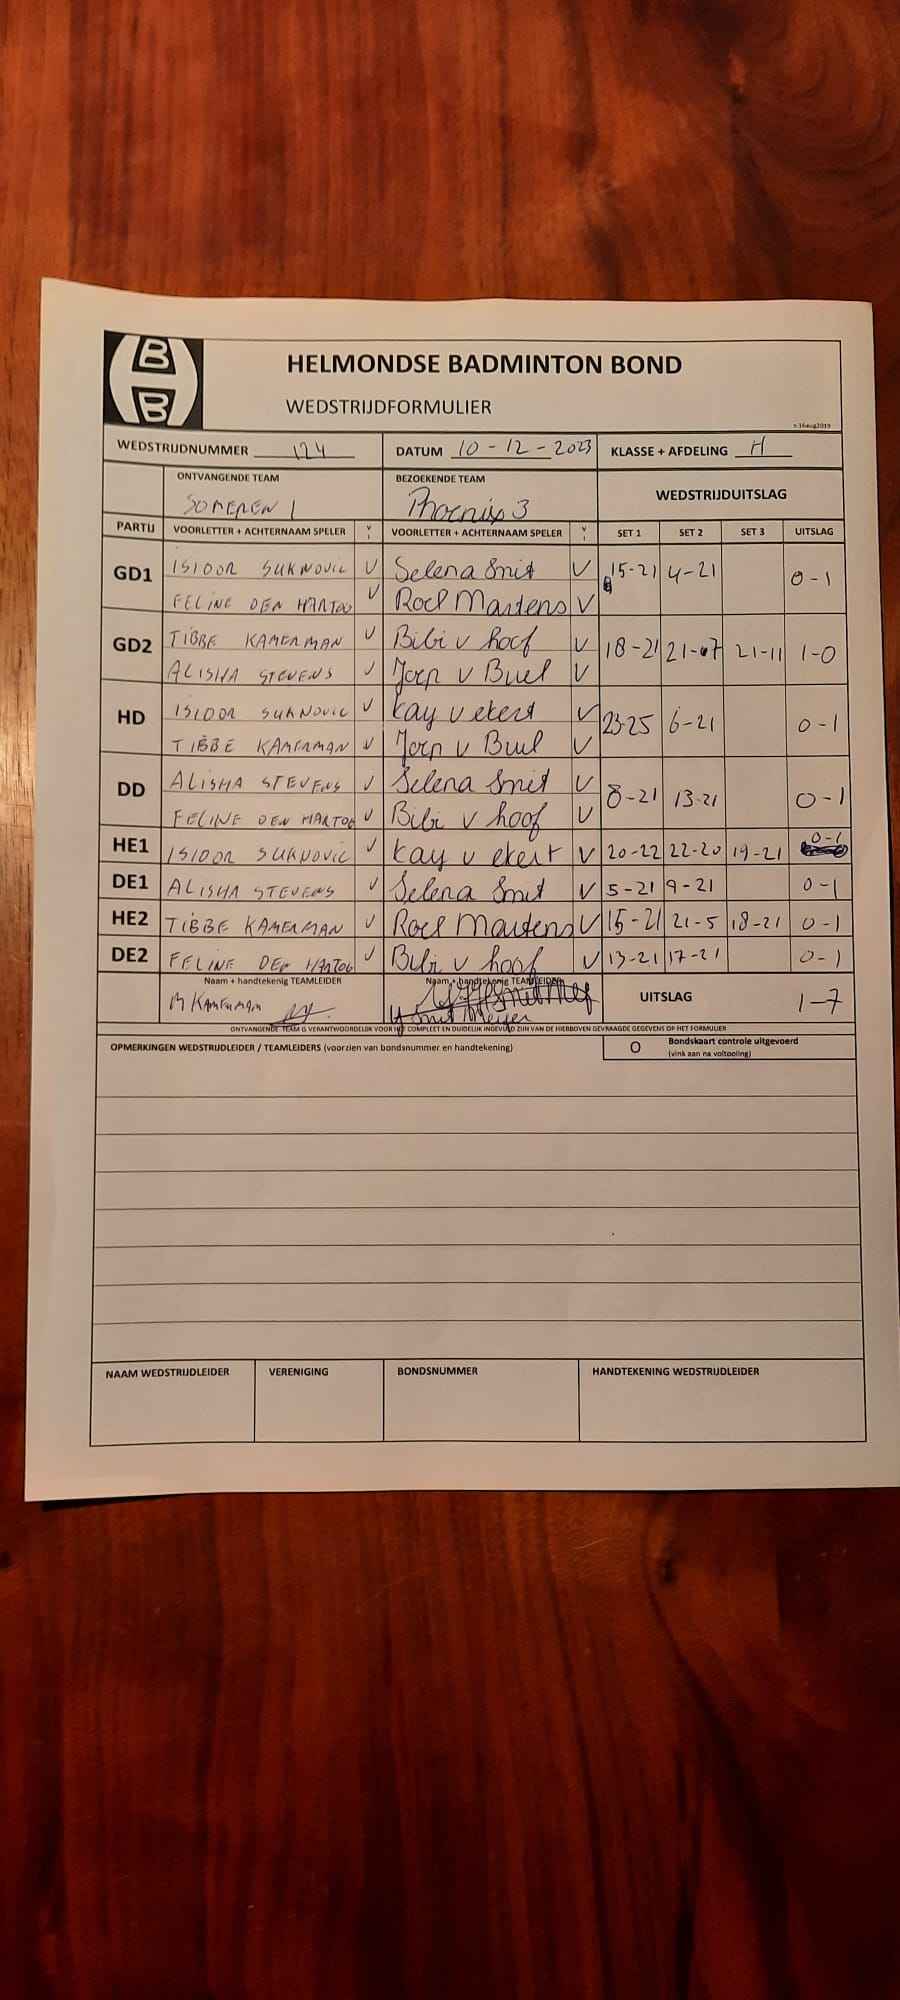 B
B
HELMONDSE BADMINTON BOND
WEDSTRIJDFORMULIER
v.16aug2019
WEDSTRIJDNUMMER 124 DATUM 10-12-2023 KLASSE + AFDELING H
ONTVANGENDE TEAM BEZOEKENDE TEAM WEDSTRIJDUITSLAG
SOMEREN 1 Phoenix 3
PARTIJ VOORLETTER + ACHTERNAAM SPELER V VOORLETTER + ACHTERNAAM SPELER V SET 1 SET 2 SET 3 UITSLAG
GD1 ISIDOR SUKNOVIC V Selena Smit V 15-21 4-21 0-1
FELINE DEN HARTOG V Roel Martens V
GD2 TIBBE KAMERMAN V Bibi v hoof V 18-21 21-07 21-11 1-0
ALISHA STEVENS V Joep v Buel V
HD ISIDOR SUKNOVIC V Kay v ekert V 23-25 6-21 0-1
TIBBE KAMERMAN V Joep v Buul V
DD ALISHA STEVENS V Selena Smit V 8-21 13-21 0-1
FELINE DEN HARTOG V Bibi v hoof V
HE1 ISIDOR SUKNOVIC V Kay v ekert V 20-22 22-20 19-21 0-1
DE1 ALISHA STEVENS V Selena Smit V 5-21 9-21 0-1
HE2 TIBBE KAMERMAN V Roel Martens V 15-21 21-5 18-21 0-1
DE2 FELINE DEN HARTOG V Bibi v hoof V 13-21 17-21 0-1
Naam + handtekenig TEAMLEIDER Naam + handtekenig TEAMLEIDER UITSLAG 1-7
M KAMERMAN Y Smit Meijer
ONTVANGENDE TEAM IS VERANTWOORDELIJK VOOR HET COMPLEET EN DUIDELIJK INGEVULD ZIJN VAN DE HIERBOVEN GEVRAAGDE GEGEVENS OP HET FORMULIER
OPMERKINGEN WEDSTRIJDLEIDER / TEAMLEIDERS (voorzien van bondsnummer en handtekening) O Bondskaart controle uitgevoerd
(vink aan na voltooiing)
NAAM WEDSTRIJDLEIDER VERENIGING BONDSNUMMER HANDTEKENING WEDSTRIJDLEIDER